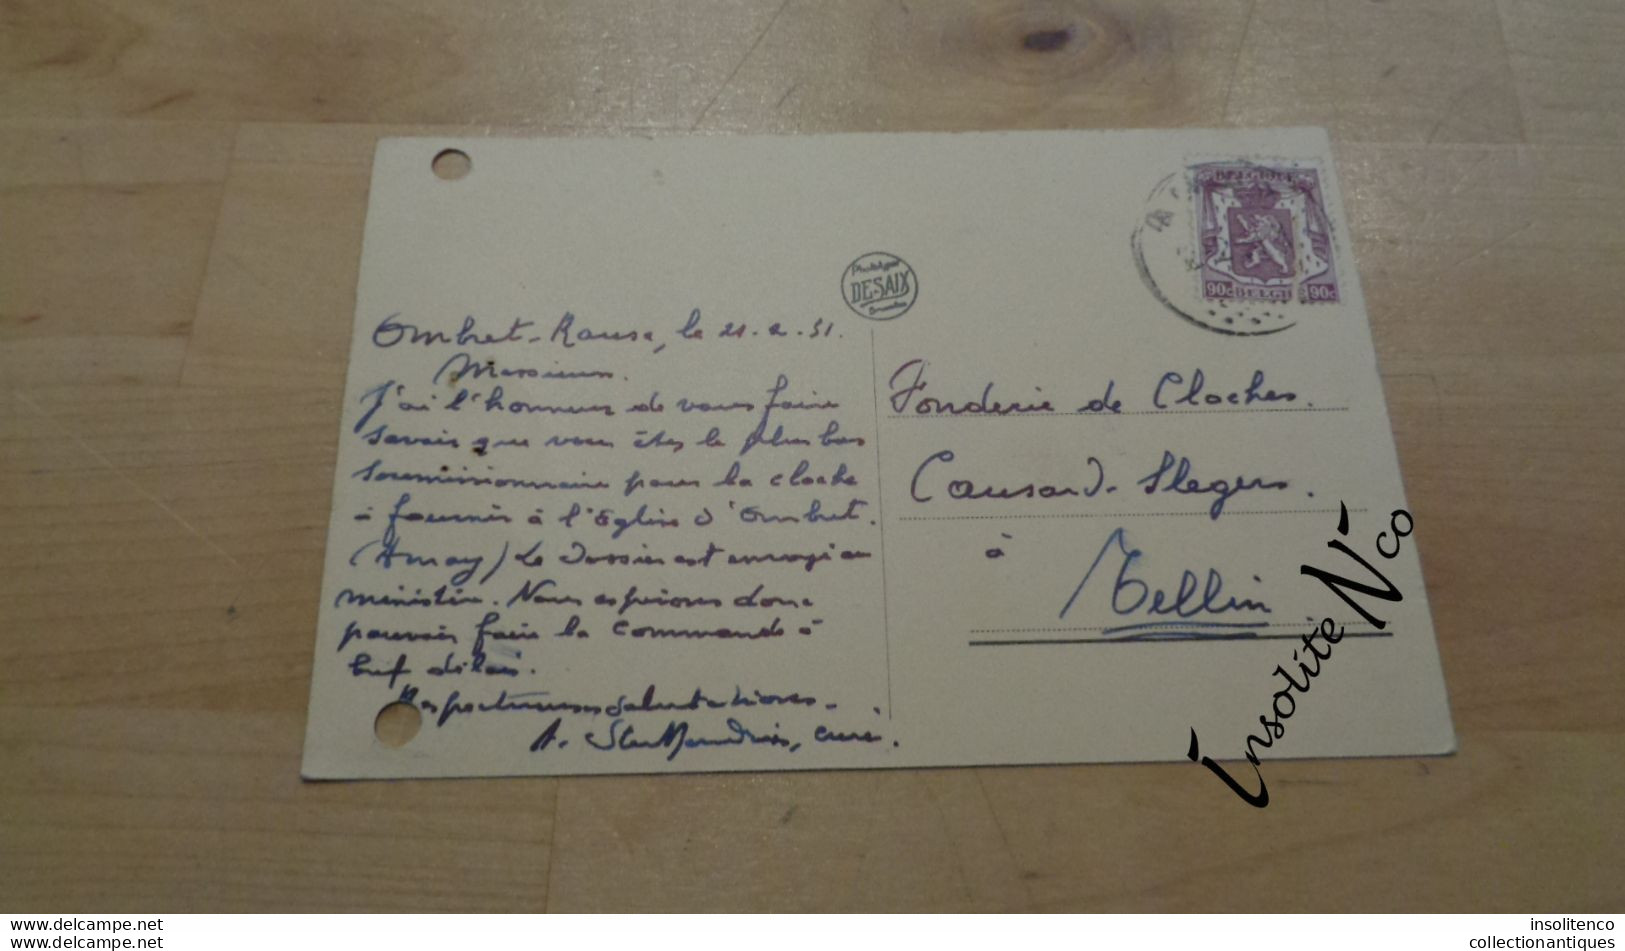 BELGIQUE
90c BELGIË 90c
Phototypie
DESAIX
Bruxelles
Ombret-Rausa, le 21.2.51.
Messieurs.
J'ai l'honneur de vous faire
savoir que vous êtes le plus bas
soumissionnaire pour la cloche
à fournir à l'Eglise d'Ombret.
(Amay) Le Dossier est envoyé au
ministère. Nous espérions donc
pouvoir faire la commande à
bref délai.
Respectueuses salutations.
A. curé.
Fonderie de Cloches.
Causard-Slegers.
à
Tellin
Insolite N'co
delcampe.net
delcampe.net
insolitenco
collectionantiques